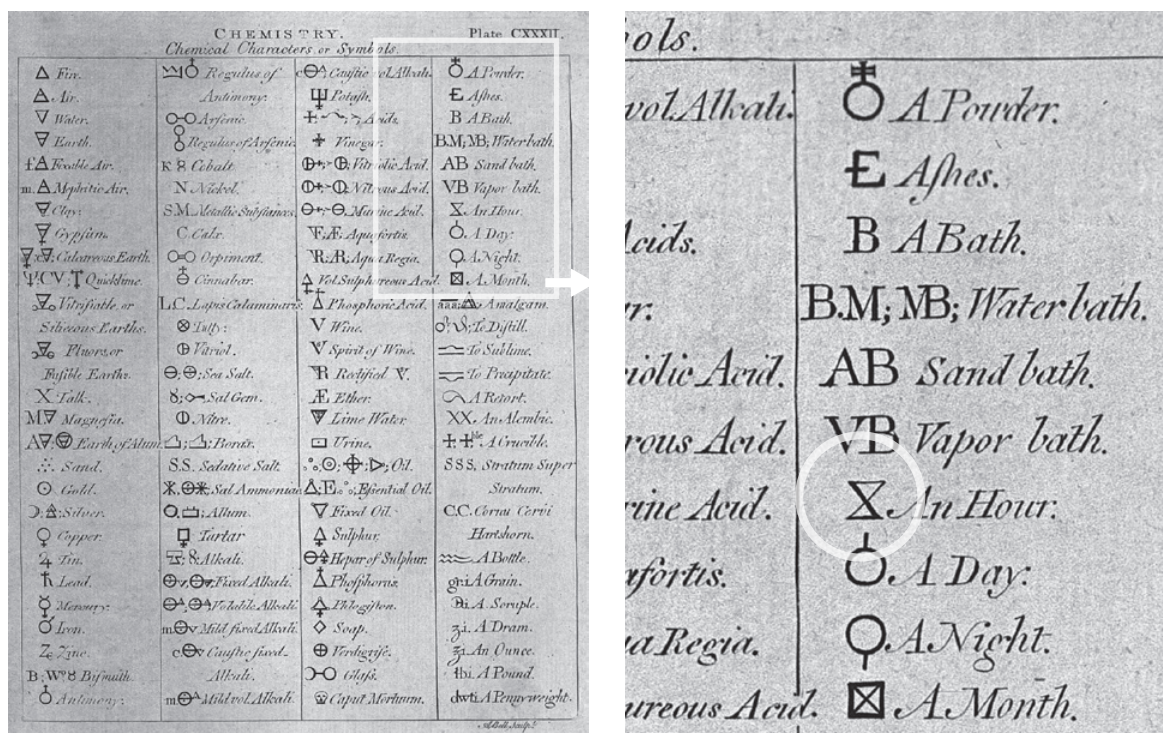 CHEMISTRY.
Plate CXXXII.
Chemical Characters or Symbols.
△ Fire.
Air.
▽ Water.
Earth.
f Fixable Air.
m. Mephitic Air.
Clay.
Gypſum.
Calcareous Earth.
CV; Quicklime.
Vitrifiable, or
Siliceous Earths.
Fluors, or
Fuſible Earths.
X Talk.
M Magneſia.
A Earth of Alum.
Sand.
☉ Gold.
☽ Silver.
♀ Copper.
♃ Tin.
♄ Lead.
☿ Mercury.
♂ Iron.
Z Zinc.
B; W Biſmuth.
♁ Antimony.
Regulus of
Antimony.
Arſenic.
Regulus of Arſenic.
K Cobalt.
N. Nickel.
S.M. Metallic Subſtances.
C. Calx.
Orpiment.
Cinnabar.
L.C. Lapis Calaminaris.
⊗ Tutty.
Vitriol.
Sea Salt.
Sal Gem.
Nitre.
Borax.
S.S. Sedative Salt.
Sal Ammoniac.
Allum.
Tartar
Alkali.
Fixed Alkali.
Volatile Alkali.
m Mild fixed Alkali.
c Cauſtic fixed.
Alkali.
m Mild vol. Alkali.
c Cauſtic vol. Alkali.
Potaſh.
Acids.
Vinegar.
Vitriolic Acid.
Nitrous Acid.
Marine Acid.
Aquafortis.
Aqua Regia.
Vol. Sulphureous Acid.
Phoſphoric Acid.
V Wine.
Spirit of Wine.
Rectified
Æ Ether.
Lime Water.
Urine.
Oil.
Eſsential Oil.
Fixed Oil.
Sulphur.
Hepar of Sulphur.
Phoſphorus.
Phlogiſton.
◇ Soap.
Verdigriſe.
Glaſs.
Caput Mortuum.
♁ A Powder.
Aſhes.
B A Bath.
B.M; MB; Water bath.
AB Sand bath.
VB Vapor bath.
An Hour.
A Day.
A Night.
⊠ A Month.
aaa; Amalgam.
To Diſtill.
To Sublime.
To Precipitate.
A Retort.
XX. An Alembic.
A Crucible.
S.S.S. Stratum Super
Stratum.
C.C. Cornu Cervi
Hartshorn.
A Bottle.
gri A Grain.
℈i A Scruple.
ʒi. A Dram.
℥i. An Ounce.
℔i A Pound.
dwti A Pennyweight.
A.Bell Sculp.t
ols.
vol. Alkali.
♁ A Powder.
Aſhes.
cids.
B A Bath.
r.
B.M; MB; Water bath.
iolic Acid.
AB Sand bath.
rous Acid.
VB Vapor bath.
rine Acid.
An Hour.
afortis.
A Day.
ua Regia.
A Night.
ureous Acid.
⊠ A Month.